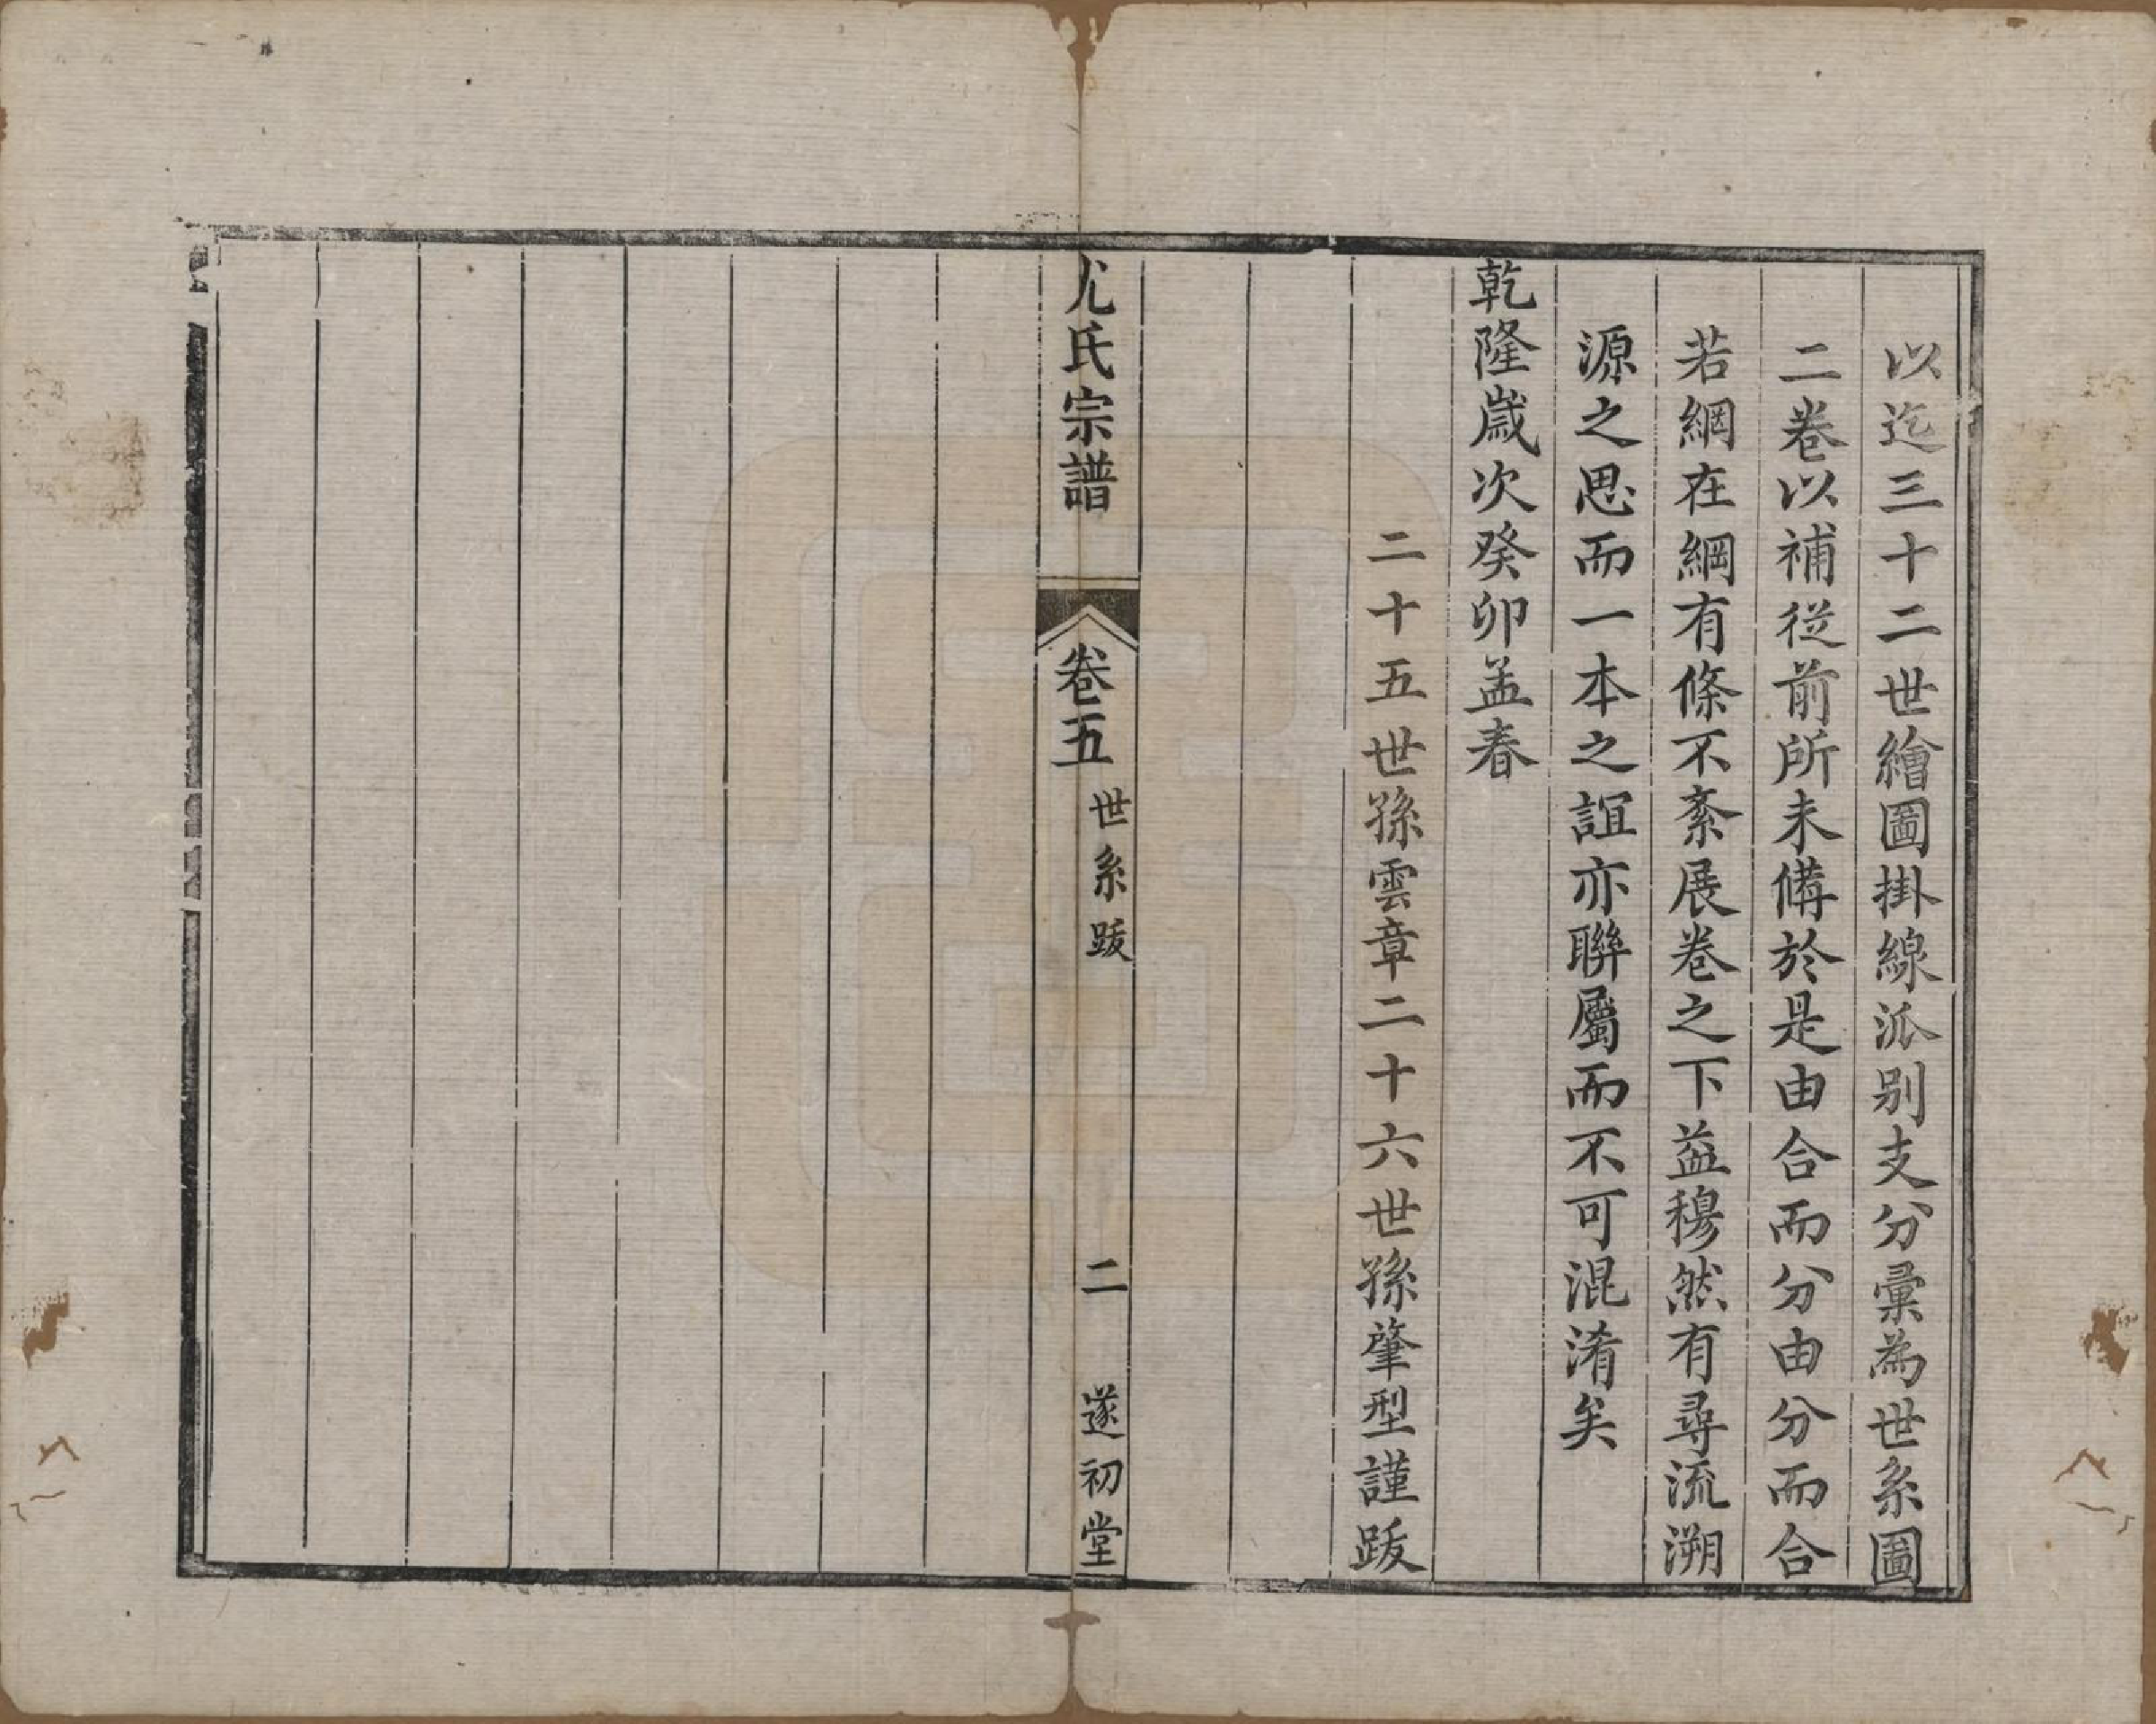 以迄三十二世繪圖掛線派别支分彙為世系圖
二卷以補從前所未備於是由合而分由分而合
若綱在綱有條不紊展卷之下益穆然有尋流溯
源之思而一本之誼亦聯屬而不可混淆矣
乾隆歲次癸卯孟春
二十五世孫雲章二十六世孫肇型謹跋
尤氏宗譜
卷五
世系跋
二
遂初堂